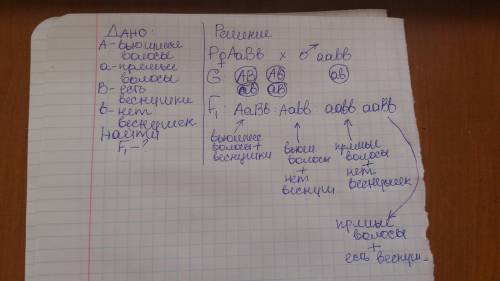 Дано:
А- вьющиеся
волосы
а- прямые
волосы
В- есть
веснушки
b- нет
веснушек
Найти
F₁ - ?
Решение
P ♀ AaBb × ♂ aabb
G AB Ab ab
ab aB
F₁: AaBb : Aabb aabb aaBb
вьющиеся
волосы +
веснушки
вьющ
волосы
+
нет
веснуш
прямые
волосы
+
нет
веснушек
прямые
волосы
+
есть веснуш-